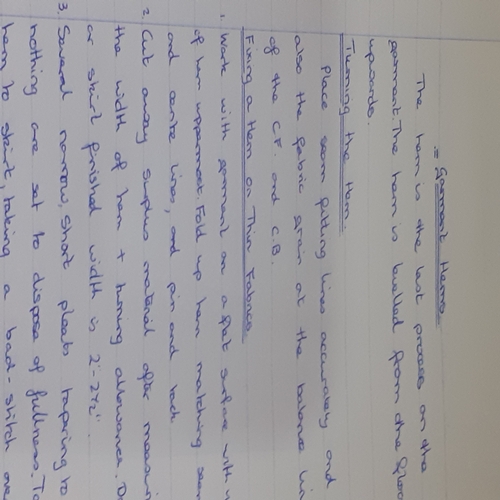 = Garment Hems
The hem is the last process on the
garment. The hem is levelled from the floor
upwards.
Turning the Hem.
Place seam fitting lines accurately and
also the fabric grain at the balance
of the C.F. and C.B.
Fixing a Hem on Thin Fabrics
1. Work with garment on a flat surface with
of hem uppermost. Fold up hem matching
and centre lines, and pin and tack
2. Cut away surplus material after
the width of hem + turning allowance.
or skirt finished width is 2"-2½".
3. Several narrow, short pleats tapering to
nothing are set to dispose of fullness.
hem to skirt, taking a back-stitch